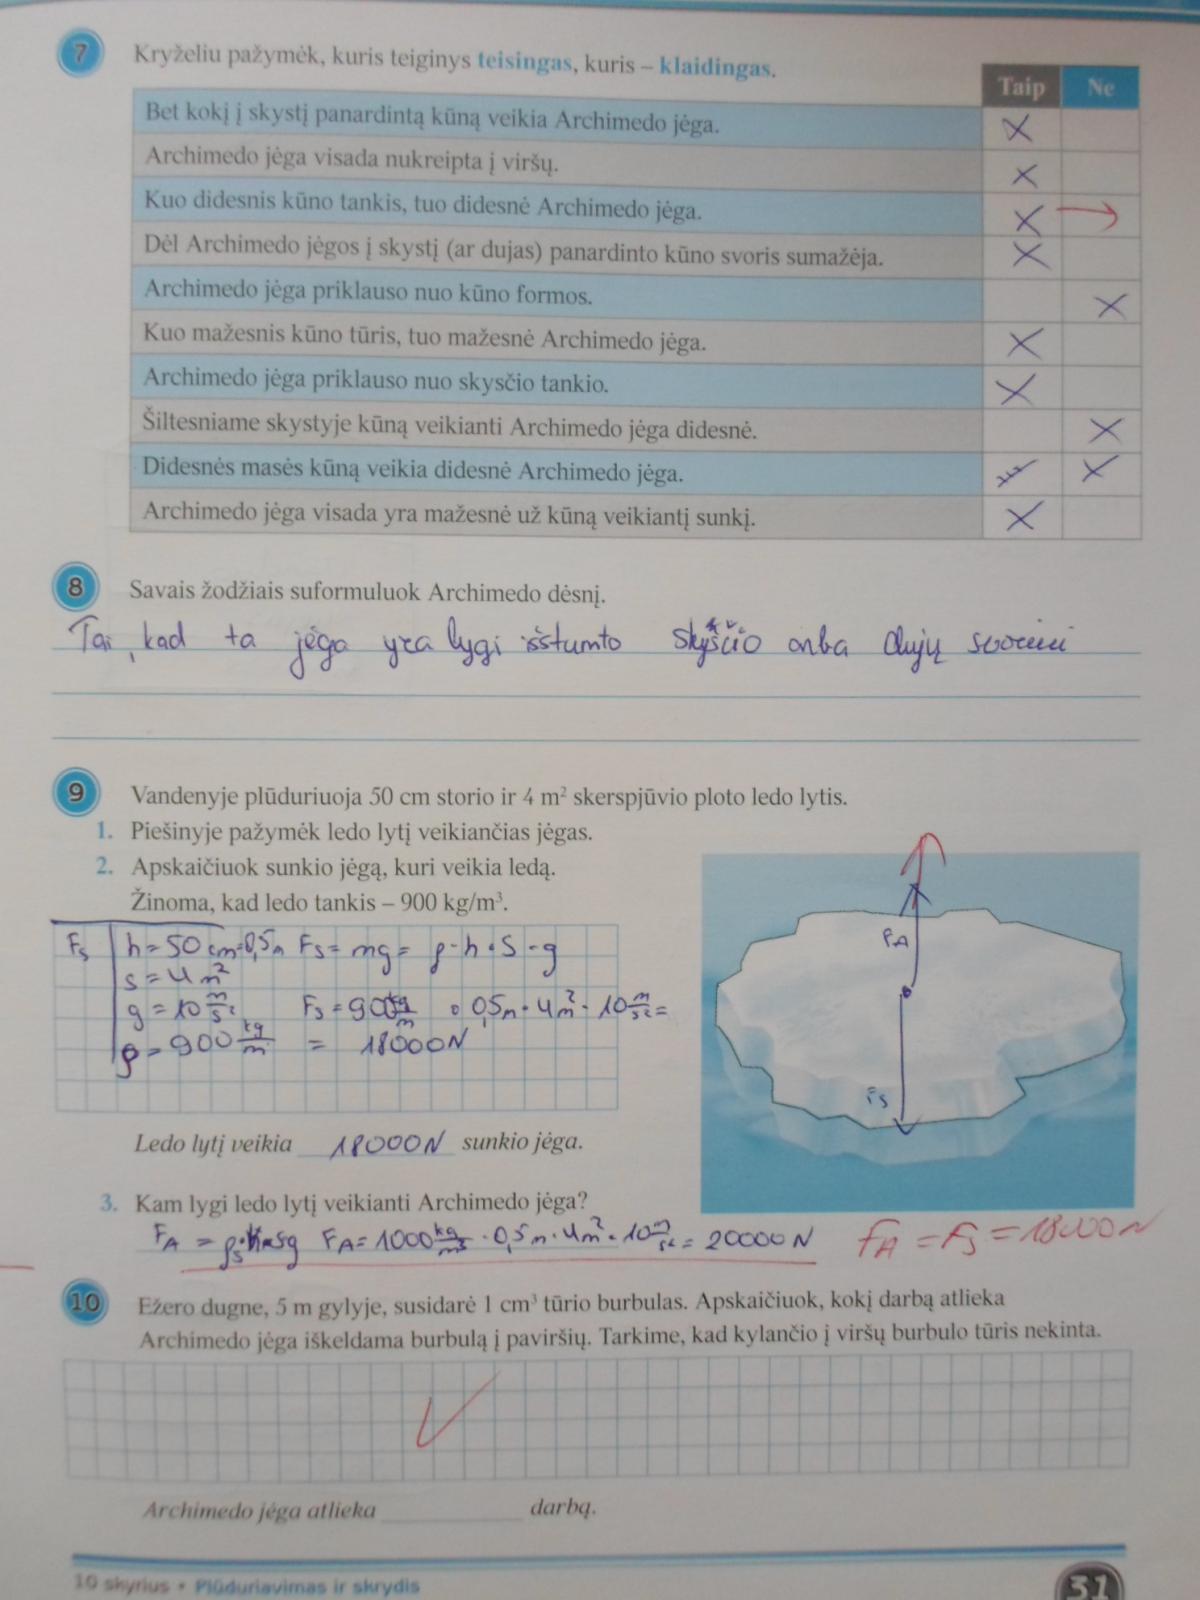 7 Kryželiu pažymėk, kuris teiginys teisingas, kuris – klaidingas.
Taip Ne
Bet kokį į skystį panardintą kūną veikia Archimedo jėga.
Archimedo jėga visada nukreipta į viršų.
Kuo didesnis kūno tankis, tuo didesnė Archimedo jėga.
Dėl Archimedo jėgos į skystį (ar dujas) panardinto kūno svoris sumažėja.
Archimedo jėga priklauso nuo kūno formos.
Kuo mažesnis kūno tūris, tuo mažesnė Archimedo jėga.
Archimedo jėga priklauso nuo skysčio tankio.
Šiltesniame skystyje kūną veikianti Archimedo jėga didesnė.
Didesnės masės kūną veikia didesnė Archimedo jėga.
Archimedo jėga visada yra mažesnė už kūną veikiantį sunkį.
8 Savais žodžiais suformuluok Archimedo dėsnį.
Tai, kad ta jėga yra lygi išstumto skysčio arba dujų svoriui
9 Vandenyje plūduriuoja 50 cm storio ir 4 m² skerspjūvio ploto ledo lytis.
1. Piešinyje pažymėk ledo lytį veikiančias jėgas.
2. Apskaičiuok sunkio jėgą, kuri veikia ledą.
Žinoma, kad ledo tankis – 900 kg/m³.
Fs h = 50 cm = 0,5m Fs = mg = ρ · h · S · g
s = 4 m²
g = 10 m/s² Fs = 900 kg/m · 0,5m · 4m² · 10 m/s² =
ρ = 900 kg/m = 18000N
FA
Fs
Ledo lytį veikia 18000N sunkio jėga.
3. Kam lygi ledo lytį veikianti Archimedo jėga?
FA = ρs·hsg FA = 1000 kg/m³ · 0,5m · 4m² · 10 m/s² = 20000 N FA = Fs = 18000 N
10 Ežero dugne, 5 m gylyje, susidarė 1 cm³ tūrio burbulas. Apskaičiuok, kokį darbą atlieka
Archimedo jėga iškeldama burbulą į paviršių. Tarkime, kad kylančio į viršų burbulo tūris nekinta.
Archimedo jėga atlieka darbą.
10 skyrius • Plūduriavimas ir skrydis
31